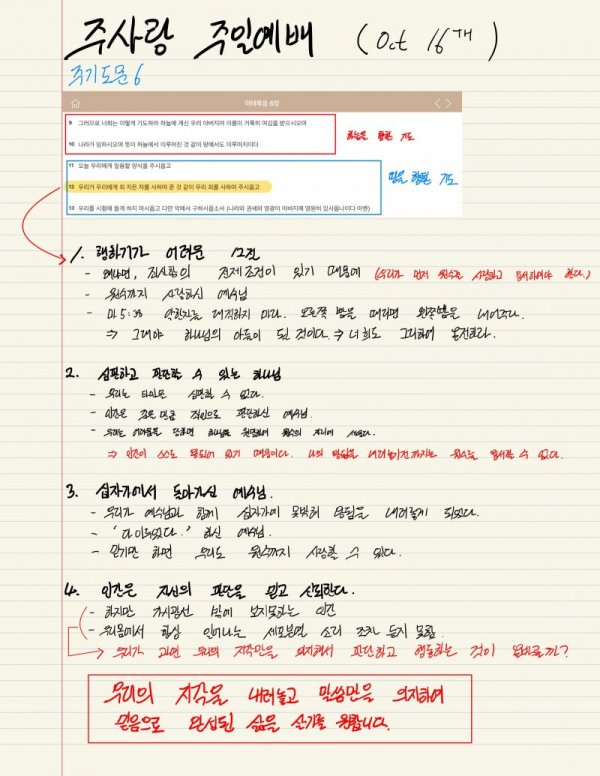 주사랑 주일예배 (Oct 16th)
주기도문 6
마태복음 6장
9 그러므로 너희는 이렇게 기도하라 하늘에 계신 우리 아버지여 이름이 거룩히 여김을 받으시오며
10 나라가 임하시오며 뜻이 하늘에서 이루어진 것 같이 땅에서도 이루어지이다
하늘을 향한 기도
11 오늘 우리에게 일용할 양식을 주시옵고
12 우리가 우리에게 죄 지은 자를 사하여 준 것 같이 우리 죄를 사하여 주시옵고
13 우리를 시험에 들게 하지 마시옵고 다만 악에서 구하시옵소서 (나라와 권세와 영광이 아버지께 영원히 있사옵나이다 아멘)
땅을 향한 기도
1. 행하기가 어려운 12절
- 왜냐면, 죄사함의 전제조건이 있기 때문에 (우리가 먼저 원수를 사랑하고 용서하여야 한다.)
- 원수까지 사랑하신 예수님
- 마 5:38 악한자를 대적하지 마라. 오른쪽 뺨을 때리면 왼쪽뺨을 내어주라.
⇒ 그래야 하나님의 아들이 될 것이다. ⇒ 너희도 그리하여 온전하라.
2. 심판하고 판단할 수 있는 하나님
- 우리는 타인을 심판할 수 없다.
- 인간은 죄인으로 판단하신 예수님.
- 우리는 어려움을 당하면 하나님을 원망하여 원수의 자리에 세운다.
⇒ 인간이 스스로 왕되어 있기 때문이다. 나의 왕됨을 내려놓기 전까지는 원수를 용서할 수 없다.
3. 십자가에서 돌아가신 예수님.
- 우리가 예수님과 함께 십자가에 못박혀 왕됨을 내려놓게 되었다.
- "다 이루었다." 하신 예수님.
- 믿기만 하면 우리도 원수까지 사랑할 수 있다.
4. 인간은 자신의 판단을 믿고 신뢰한다.
- 하지만 가시광선 밖에 보지못하는 인간
- 우리몸에서 항상 일어나는 세포분열 소리 조차 듣지 못함.
→ 우리가 과연 우리의 지각만을 의지해서 판단하고 행동하는 것이 올바를까?
우리의 지각을 내려놓고 말씀만을 의지하여
믿음으로 완성된 삶을 살기를 원합니다.